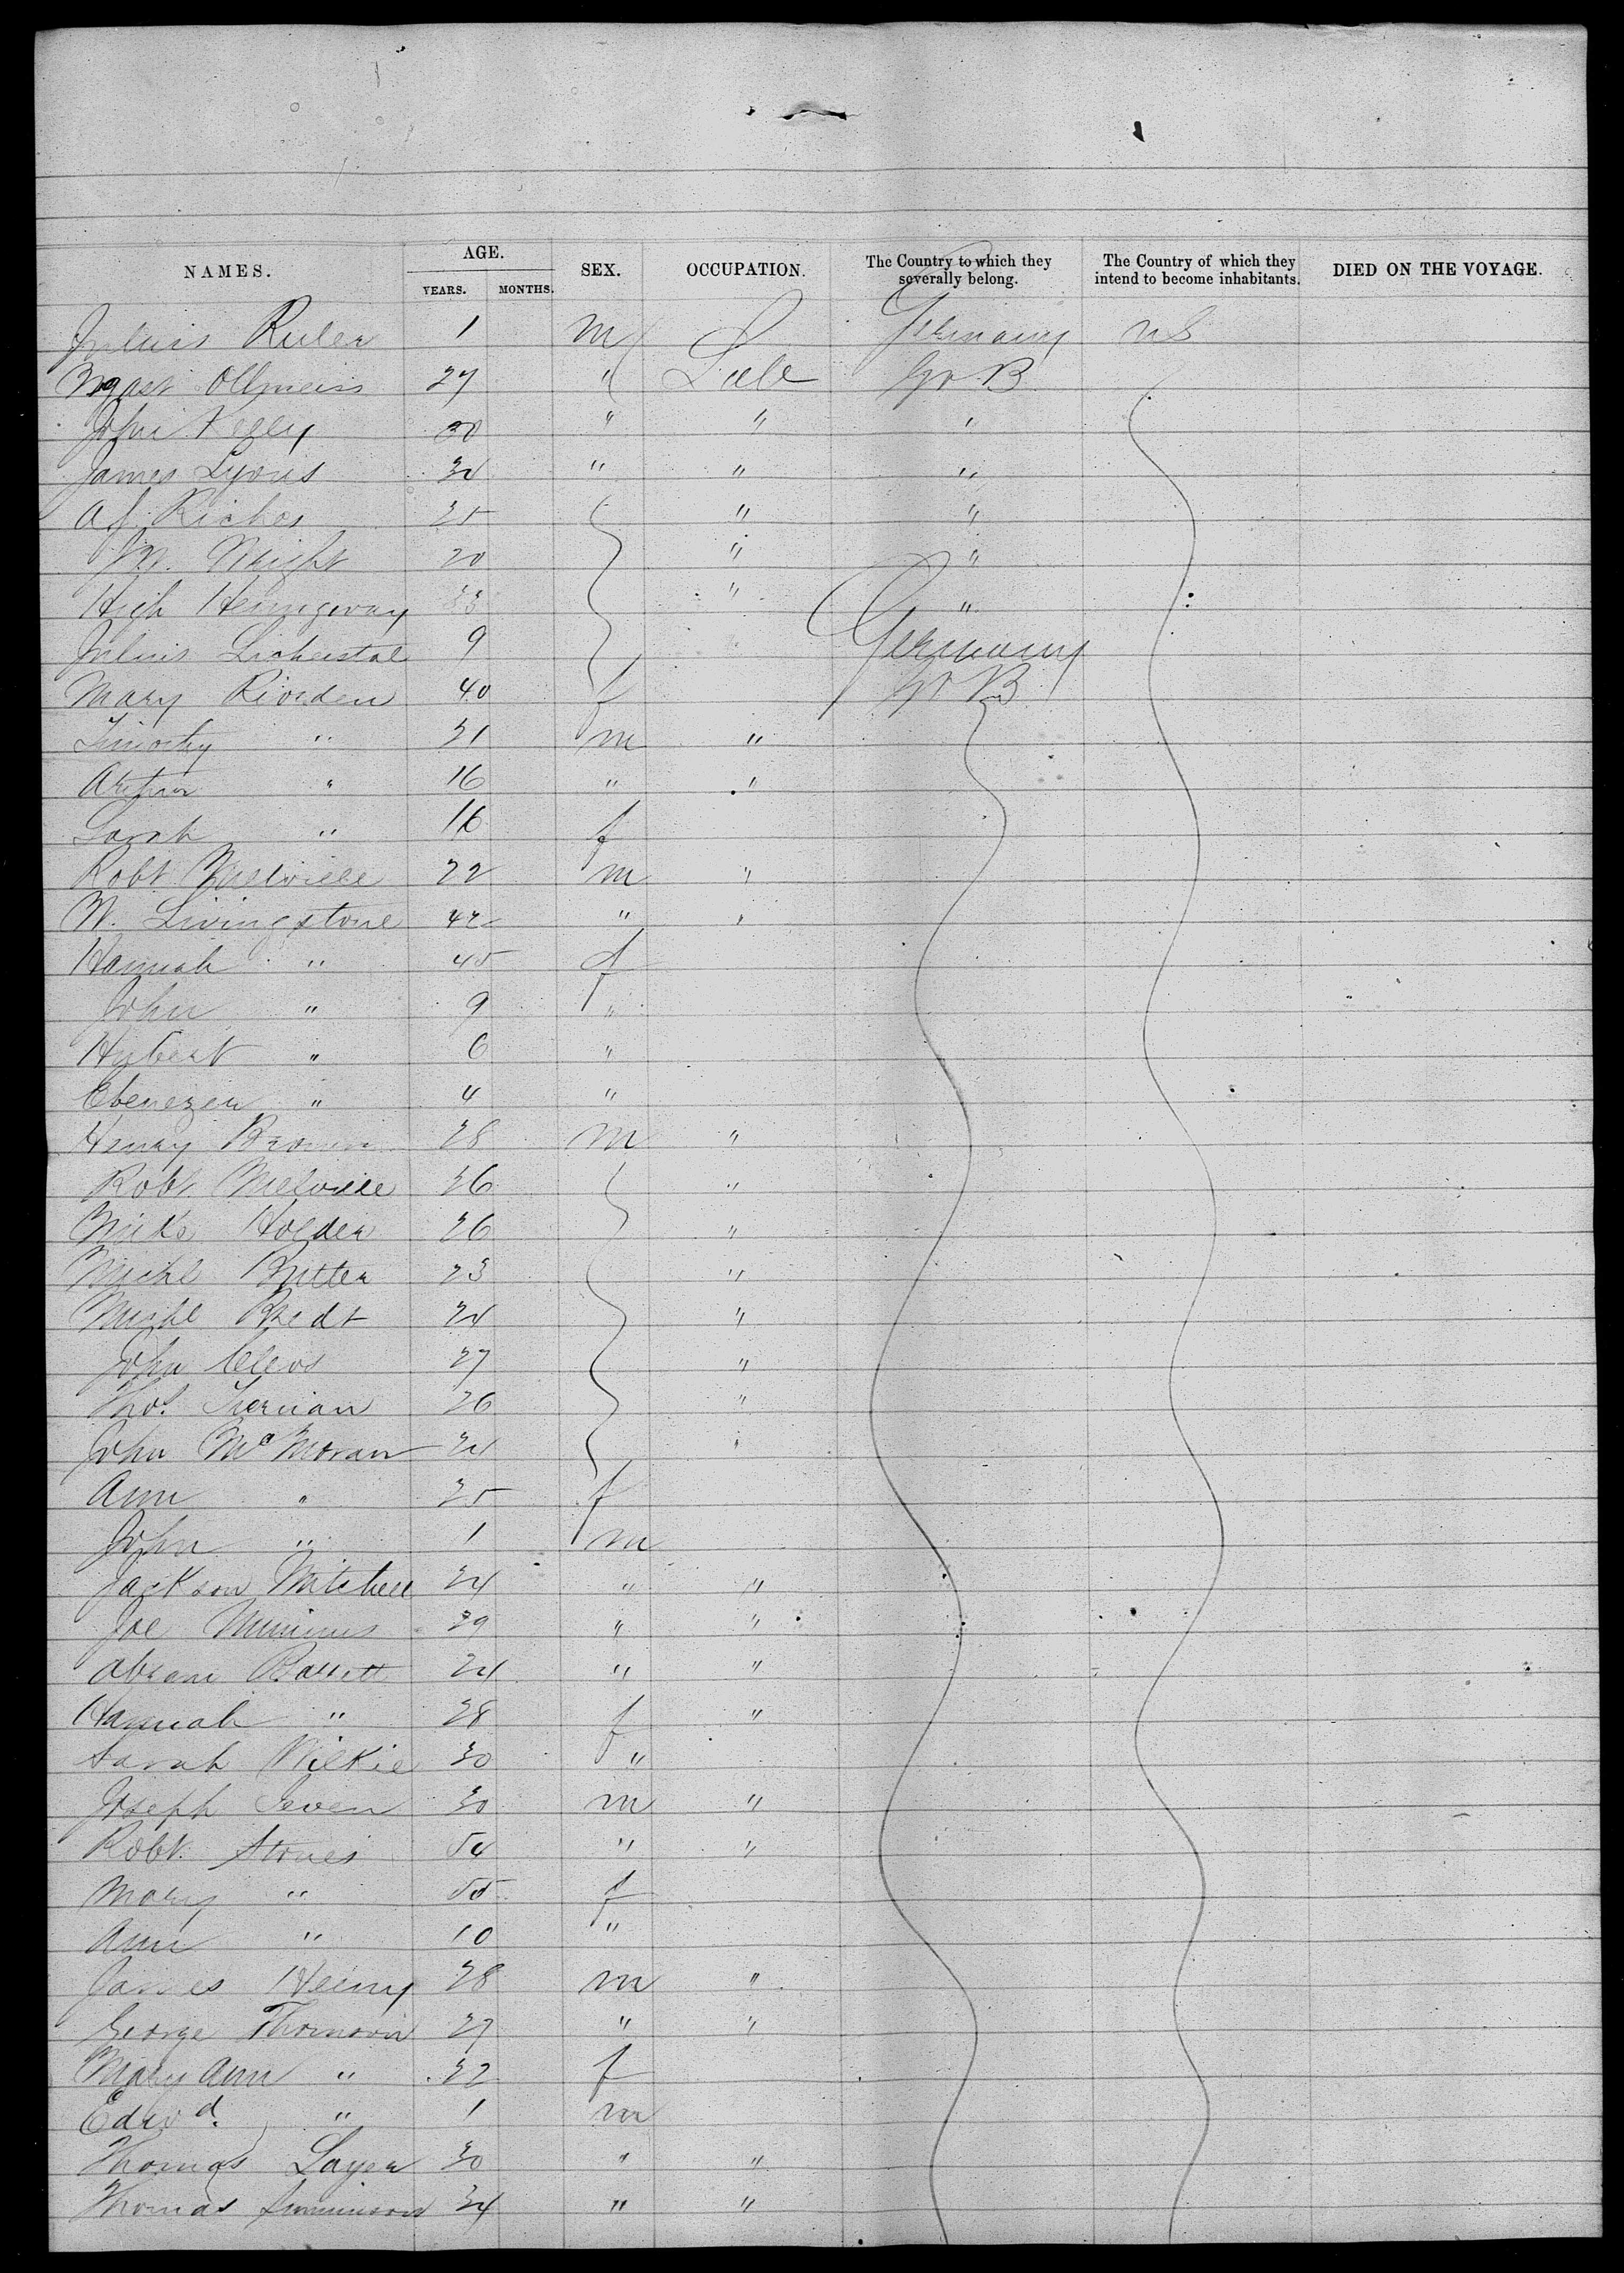 NAMES. AGE. SEX. OCCUPATION. The Country to which they severally belong. The Country of which they intend to become inhabitants. DIED ON THE VOYAGE.
YEARS. MONTHS.
Julius Ruler 1 m Germany US
27 " Gr B
John Kelly 30 " " "
James Lyons 34 " " "
25 " "
Wm. Wright 20 " "
Hugh Hemigway 33 " "
Julius 9 Germany
Mary Riorden 40 f Gr B
Timothy " 21 m "
Arthur " 16 " "
Sarah " 16 f
Robt Melville 22 m "
W. Livingstone 42 " "
Hannah " 45 f
John " 9 "
Hybert " 6 "
Ebenezer " 4 "
Henry Brown 28 m "
Robt Melville 36 "
Mike Holder 26 "
Michl Butter 23 "
Michl 24 "
John Cleos 27 "
Thos. Tiernan 26 "
John McMoran 24 "
Ann " 25 f
John " 1 m
Jackson Mitchell 24 " "
Joe 29 " "
Abram Barrett 24 " "
Hannah " 28 f "
Sarah Wilkie 30 "
Joseph Seven 30 m "
Robt. Stones 54 " "
Mary " 55 f
Ann " 10 "
James Henry 28 m "
George Thomson 27 " "
Mary Ann " 22 f
Edwd. " 1 m
Thomas Layer 30 " "
Thomas 34 " "